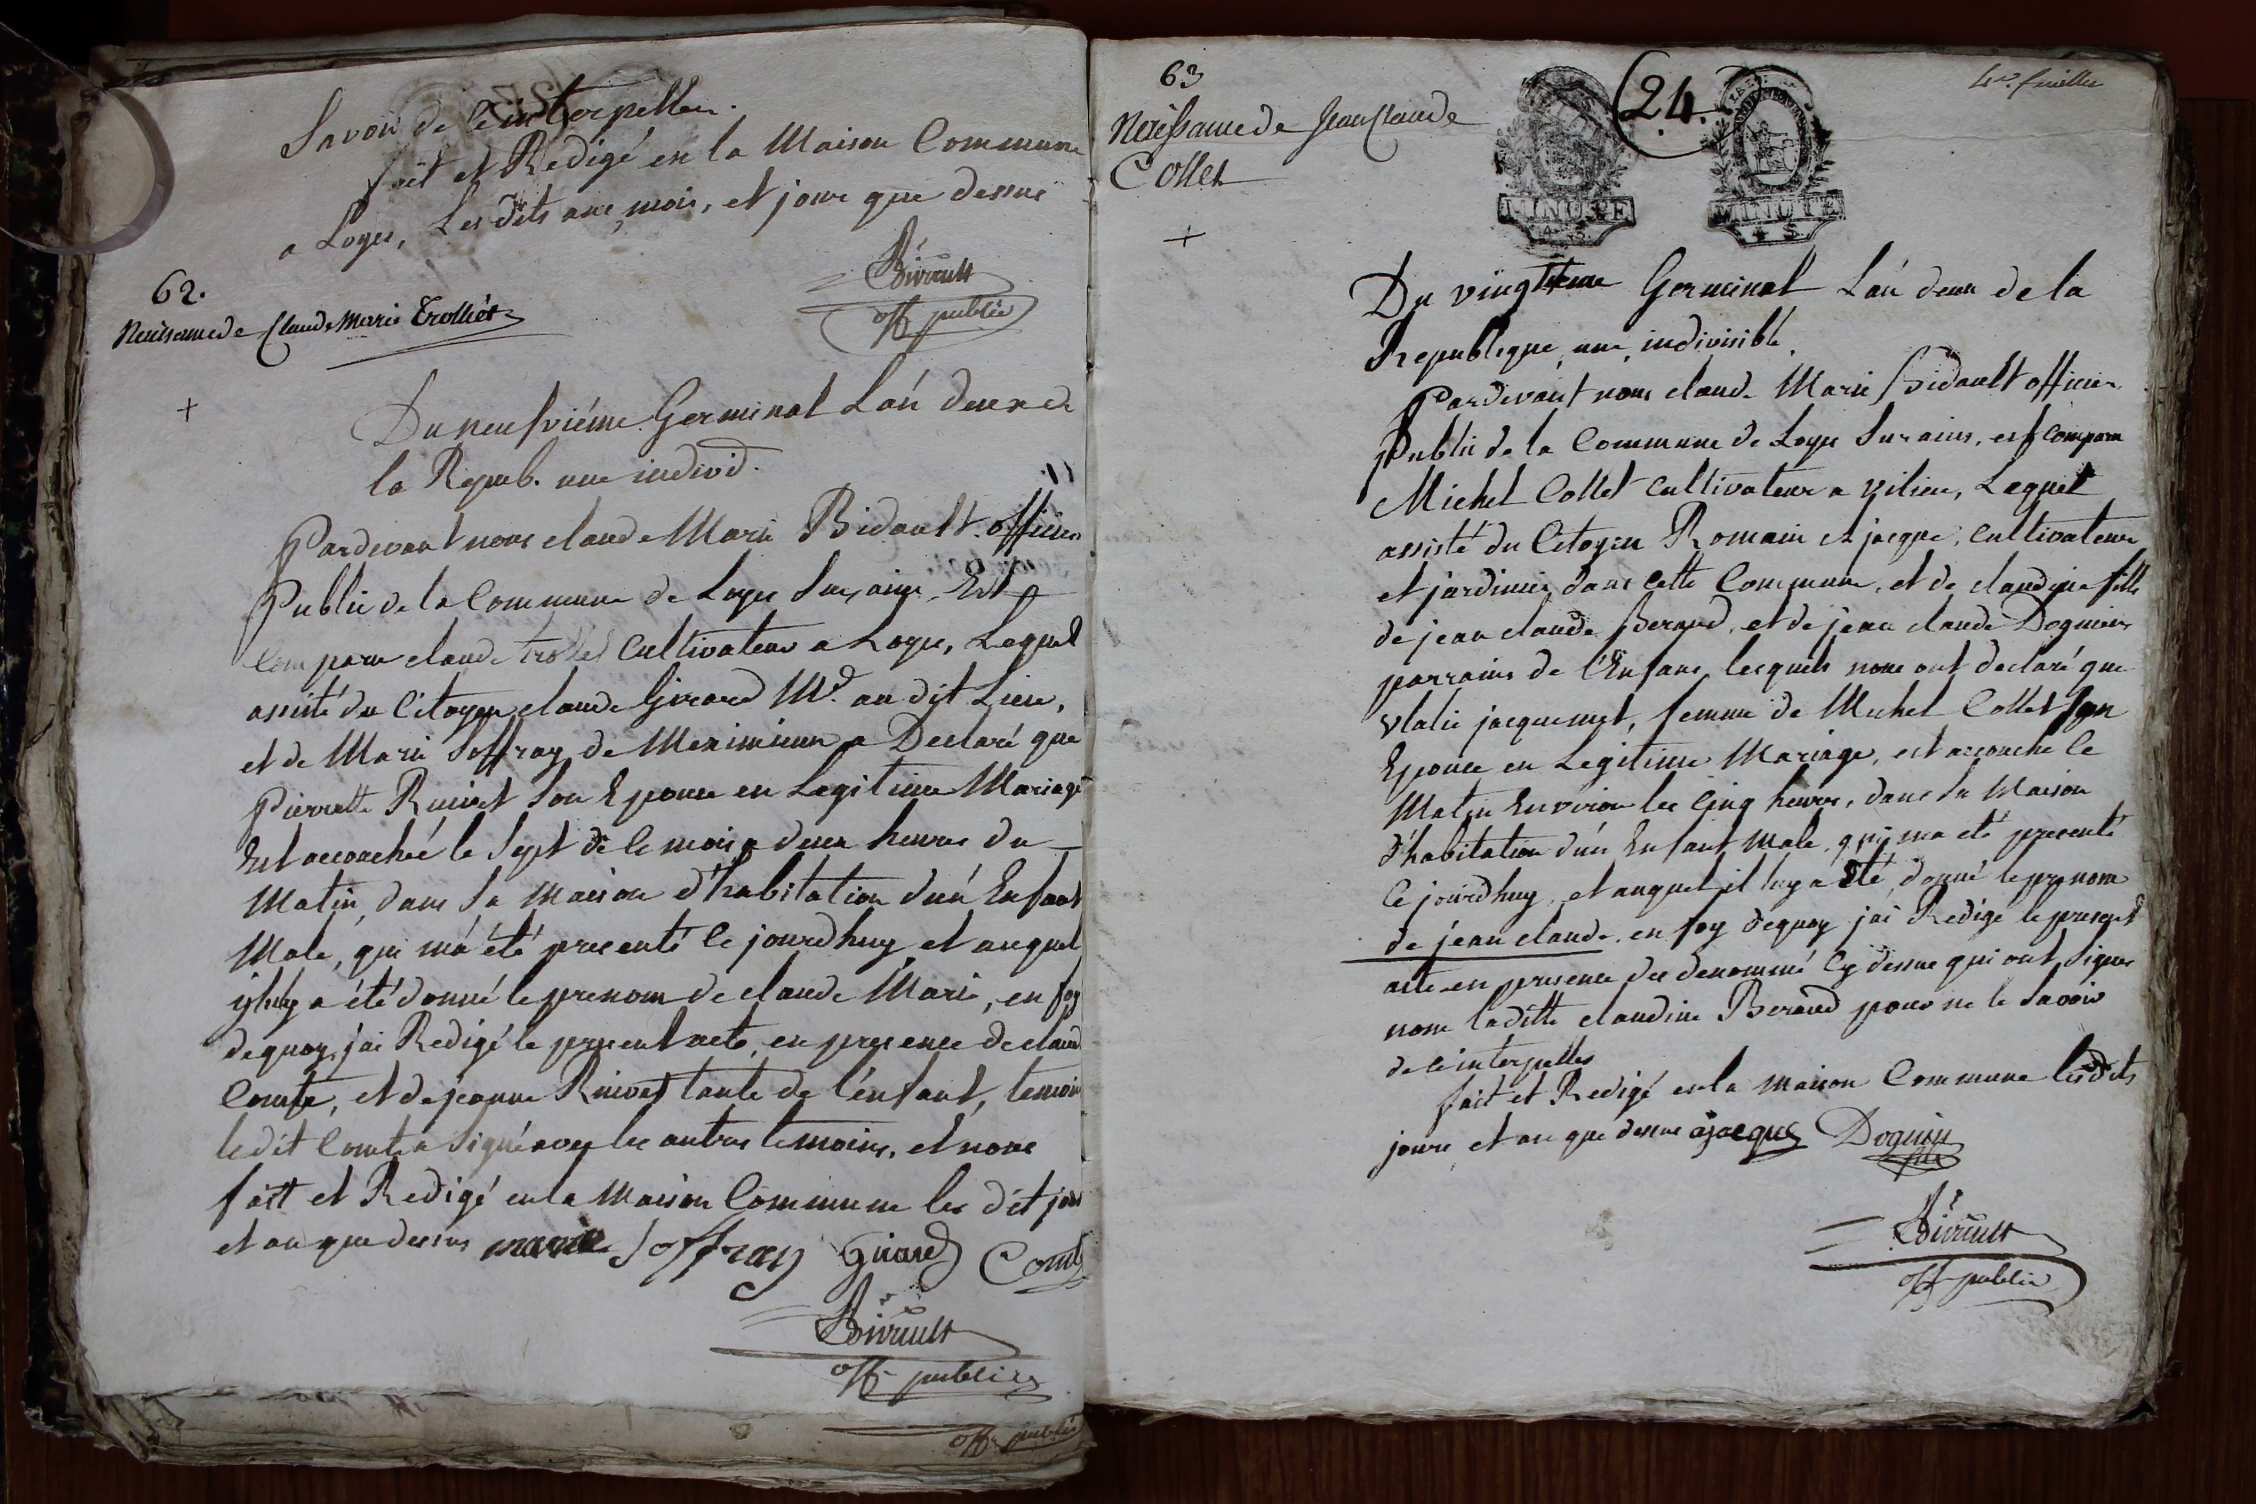 Savoir de ce interpeller.
fait et Redigé en la Maison Commune
a Loyes, Les dits an, mois, et jour que dessus
Bidault
off public
62.
Naissance de Claude Marie Trolliet
+
Du neufvième Germinal L'an deux de
la Repub. une individ.
Pardevant nous claude Marie Bidault officier
Public de la Commune de Loyes Sur ains, Est
Comparu claude Cultivateur a Loyes, Lequel
assisté du Citoyen claude Girard Md. au dit Lieu,
et de Marie Soffray de Meximieux a Declaré que
Pierrette Son Epouse en Legitime Mariage
Est accouchée le Sept de ce mois a deux heures du
Matin, dans Sa Maison d'habitation d'un Enfant
Male, qui m'a été presenté ce jourdhuy et auquel
il luy a été donné le prenom de claude Marie, en foy
dequoy j'ai Redigé le present acte, en presence de claude
Comte, et de jeanne tante de l'enfant, temoins
le dit Comte a Signé avec les autres temoins, et nous
fait et Redigé en la Maison Commune les dit jour
et an que dessus marie Soffray Girard Comte
Bidault
off public
off public
63
Naissance de Jean Claude
Collet
+
24
MINUTE
4 S.
MINUTE
4 S.
feuillet
Du vingtième Germinal L'an deux de la
Republique une, indivisible.
Pardevant nous claude Marie Bidault officier
Public de la Commune de Loyes Sur ains, est comparu
Michel Collet Cultivateur a Vilieu, Lequel
assisté du Citoyen Romain et jacque, Cultivateur
et jardinier dans cette Commune, et de claudine fille
de jean claude Berand, et de jean claude Doguin
parrains de l'Enfant, lesquels nous ont declaré que
Vlalie jacquemet, femme de Michel Collet Son
Epouse en Legitime Mariage, est accouche le
Matin Environ les Cinq heures, dans Sa Maison
d'habitation d'un Enfant Male, qui m'a été presenté
ce jourdhuy, et auquel il luy a été donné le prenom
de jean claude, en foy dequoy j'ai Redigé le present
acte en presence des denommé Cy dessus qui ont Signés
non laditte claudine Berand pour ne le Savoir
de ce interpellés
fait et Redigé en la maison Commune les dits
jours et an que dessus ajacques Doguin
Bidault
off public